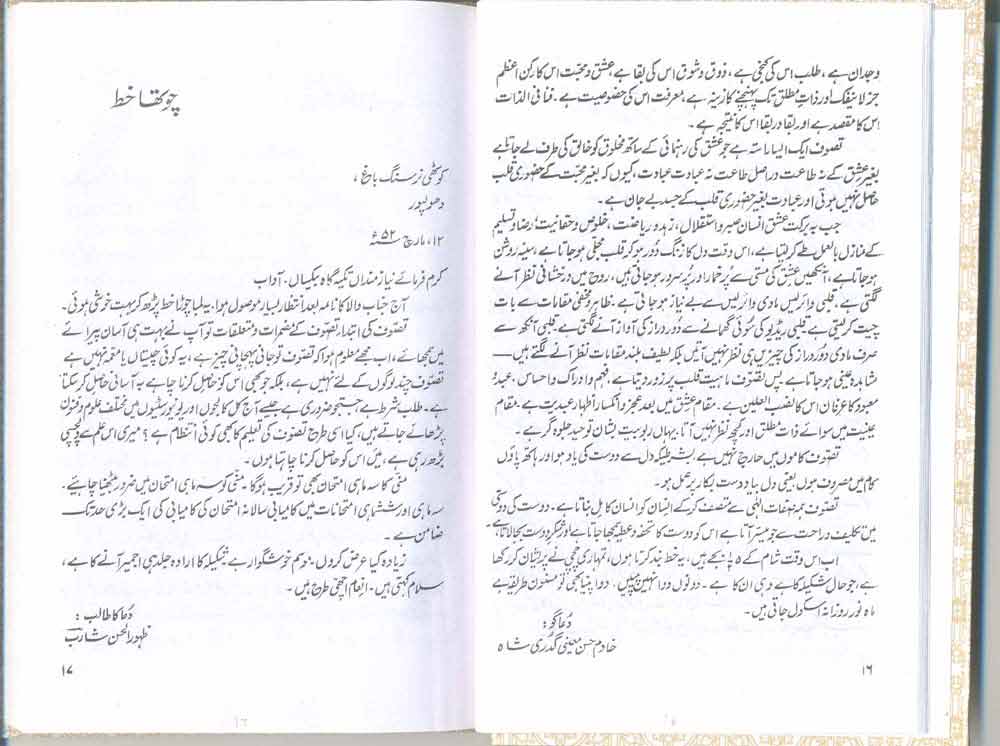 وجدان ہے، طلب اس کی کنجی ہے، ذوق و شوق اس کی بقا ہے، عشق و محبت اس کا رکن اعظم
جزلاینفک اور ذاتِ مطلق تک پہنچنے کا زینہ ہے، معرفت اس کی خصوصیت ہے۔ فنا فی الذات
اس کا مقصد ہے اور بقا در بقا اس کا نتیجہ ہے۔
تصوف ایک ایسا راستہ ہے جو عشق کی رہنمائی کے ساتھ مخلوق کو خالق کی طرف لے جاتا ہے
بغیر عشق کے نہ طاعت دراصل طاعت نہ عبادت عبادت، کیوں کہ بغیر محبت کے حضوری قلب
حاصل نہیں ہوتی اور عبادت بغیر حضوری قلب کے جسد بے جان ہے۔
جب بہ برکت عشق انسان صبر و استقلال، زہد و ریاضت، خلوص و حقانیت، رضا و تسلیم
کے منازل بالعمل طے کر لیتا ہے، اس وقت دل کا زنگ دُور ہو کر قلب مجلّٰی ہو جاتا ہے، سینہ روشن
ہو جاتا ہے، آنکھیں عشق کی مستی سے پُر خمار اور پُر سرور ہو جاتی ہیں، روح میں درخشانی نظر آنے
لگتی ہے۔ قلبی وائرلیس مادی وائرلیس سے بے نیاز ہو جاتی ہے۔ ظاہر و مخفی مقامات سے بات
چیت کر لیتی ہے قلبی ریڈیو کی سُوئی گھمانے سے دُور دراز کی آواز آنے لگتی ہے قلبی آنکھ سے
صرف مادی دُور دراز کی چیزیں ہی نظر نہیں آتیں بلکہ لطیف بلند مقامات نظر آنے لگتے ہیں —
مشاہدہ عینی ہو جاتا ہے پس تصوف ماہیت قلب پر زور دیتا ہے۔ فہم و ادراک و احساس، عبد و
معبود کا عرفان اس کا نصب العین ہے۔ مقام عشق میں بعد عجز و انکسار اظہار عبدیت ہے۔ مقام
عینیت میں سوائے ذات مطلق اور کچھ نظر نہیں آتا۔ یہاں ربوبیت بشان توحید جلوہ گر ہے۔
تصوف کاموں میں حارج نہیں ہے بشرطیکہ دل سے دوست کی یاد ہو اور ہاتھ پاؤں
کام میں مصروف ہوں یعنی دل بیار دست بکار پر عمل ہو۔
تصوف بہمہ صفات الٰہی سے متصف کر کے انسان کو انسان کامل بناتا ہے۔ دوست کی دوستی
میں تکلیف و راحت سے جو میسر آتا ہے اس کو دوست کا تحفہ و عطیہ سمجھا جاتا ہے اور شکر دوست بجا لاتا ہے۔
اب اس وقت شام کے ۵ بجے ہیں، یہ خط بند کرتا ہوں، تمہاری چچی نے پریشان کر رکھا
ہے، جو حال شکیلہ کا ہے وہی ان کا ہے۔ دونوں دوا نہیں پیتیں، دوا پینا بھی تو مسنون طریقہ ہے
ماہ نور روزانہ اسکول جاتی ہیں۔
دُعا گو:
خادم حسن معینی گدڑی شاہ
۱۶
چوتھا خط
کوٹھی نرسنگ باغ،
دھولپور
۱۲، مارچ ۵۲ء
کرم فرمائے نیاز منداں تکیہ گاہ بیکساں۔ آداب
آج جناب والا کا نامہ بعد انتظار بسیار موصول ہوا۔ لمبا چوڑا خط پڑھ کر بہت خوشی ہوئی۔
تصوف کی ابتدا، تصوف کے مضمرات و متعلقات تو آپ نے بہت ہی آسان پیرائے
میں سمجھائے، اب مجھے معلوم ہوا کہ تصوف تو جانی پہچانی چیز ہے، یہ کوئی چیستاں یا معمہ نہیں ہے
تصوف چند لوگوں کے لئے نہیں ہے، بلکہ جو بھی اس کو حاصل کرنا چاہے بہ آسانی حاصل کر سکتا
ہے۔ طلب شرط ہے، جستجو ضروری ہے جیسے آج کل کالجوں اور یونیورسٹیوں میں مختلف علوم و فنون
پڑھائے جاتے ہیں، کیا اسی طرح تصوف کی تعلیم کا بھی کوئی انتظام ہے؟ میری اس علم سے دلچسپی
بڑھ رہی ہے، میں اس کو حاصل کرنا چاہتا ہوں۔
منّی کا سہ ماہی امتحان بھی تو قریب ہوگا۔ منّی کو سہ ماہی امتحان میں ضرور بیٹھنا چاہیے۔
سہ ماہی اور ششماہی امتحانات میں کامیابی سالانہ امتحان کی کامیابی کی ایک بڑی حد تک
ضامن ہے۔
زیادہ کیا عرض کروں۔ موسم خوشگوار ہے۔ شکیلہ کا ارادہ جلد ہی اجمیر آنے کا ہے،
سلام کہتی ہیں۔ انعام اچھی طرح ہیں۔
دُعا کا طالب:
ظہور الحسن شارب
۱۷